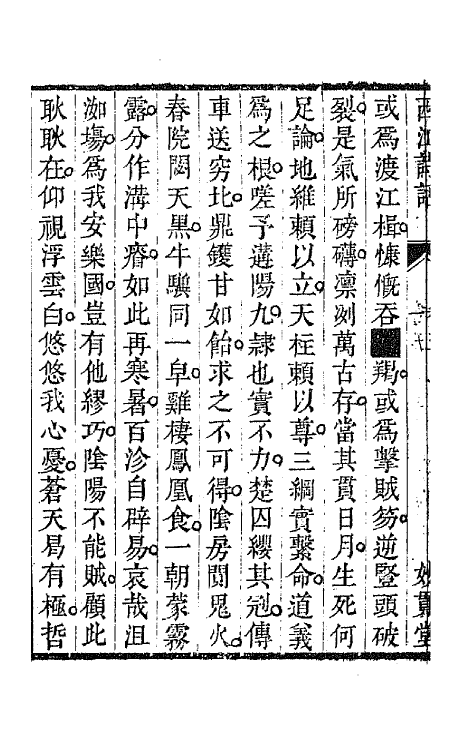 西江詩話 妙貫堂
或爲渡江楫。慷慨吞羯。或爲擊賊笏。逆豎頭破
裂。是氣所磅礴。凛冽萬古存。當其貫日月。生死何
足論。地維賴以立。天柱賴以尊。三綱實繫命。道義
爲之根。嗟予遘陽九。隷也實不力。楚囚纓其冠。傳
車送窮北。鼎鑊甘如飴。求之不可得。隂房闃鬼火。
春院閟天黑。牛驥同一皁。雞棲鳳凰食。一朝蒙霧
露。分作溝中瘠。如此再寒暑。百沴自辟易。哀哉沮
洳塲。爲我安樂國。豈有他繆巧。隂陽不能賊。顧此
耿耿在。仰視浮雲白。悠悠我心憂。蒼天曷有極。哲